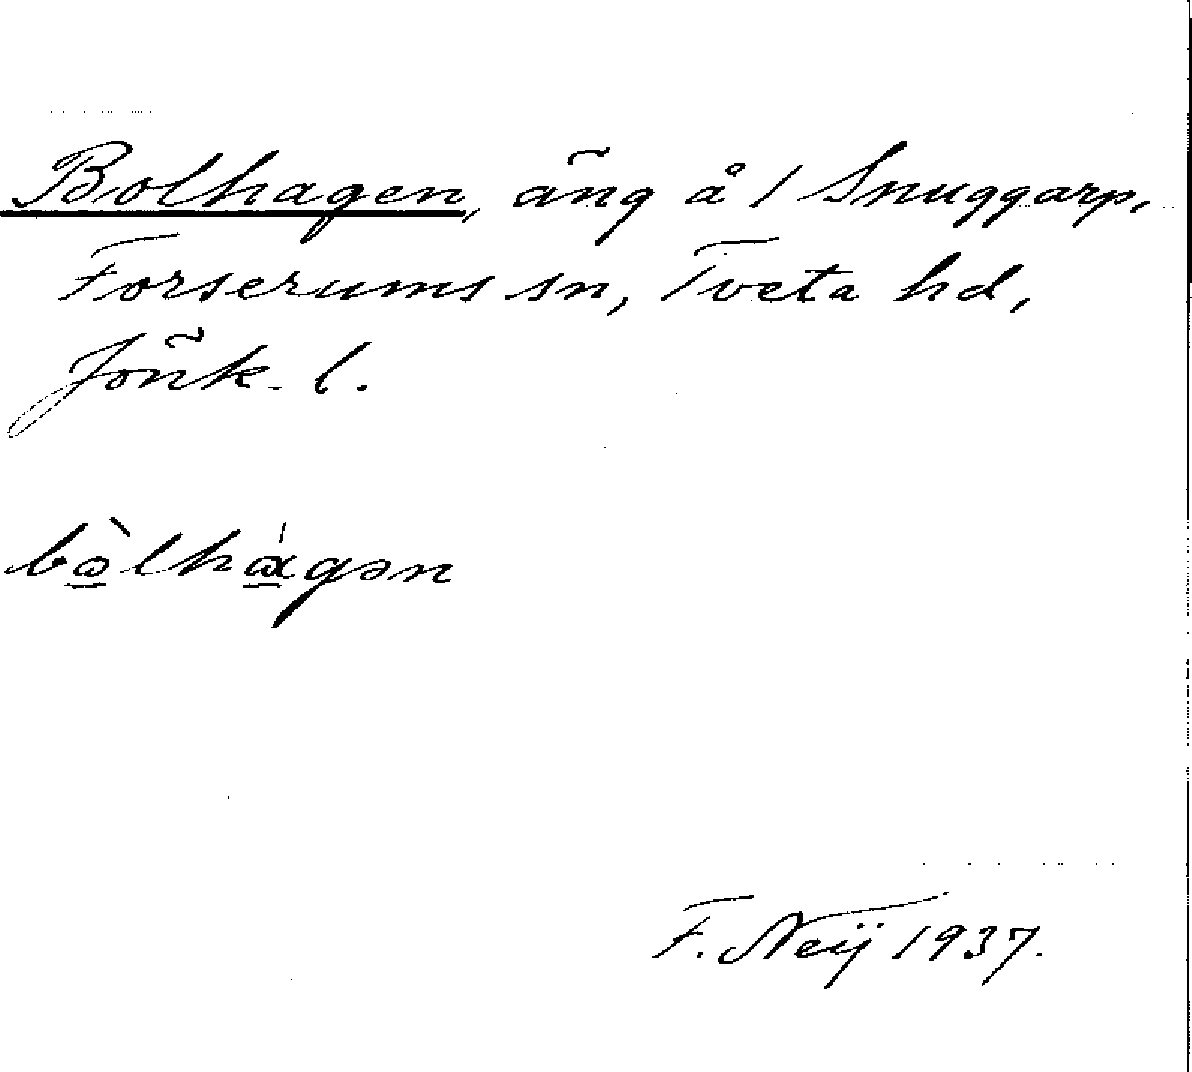 Bolhagen, äng å 1 Snuggarp,
Forserums sn, Tveta hd,
Jönk. l.
bò̲lhɑ̲́gən
F. Neij 1937.